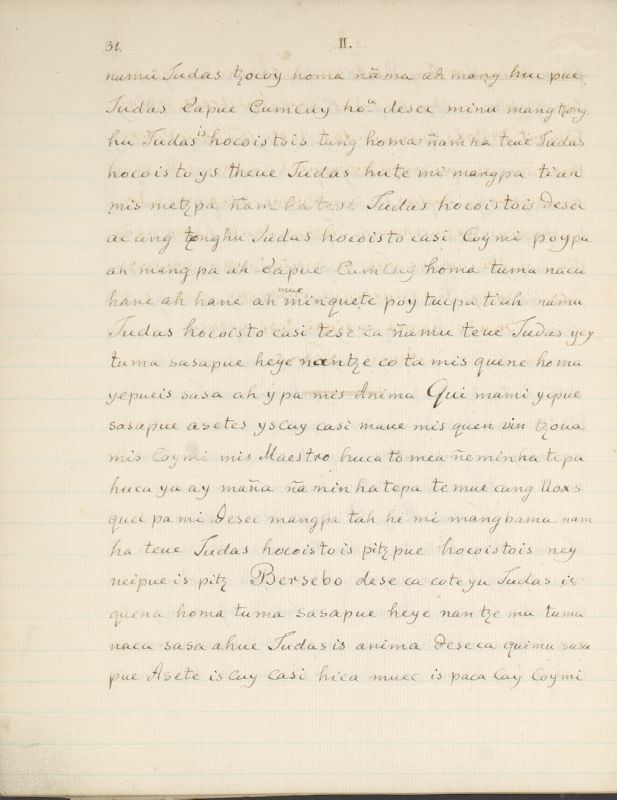 31. II.
namü Judas tzocoy homa ñama ah mang hue pue
Judas Yapue Cumcuy hoᵘ desec minu mang tzong
hu Judas is hocoistois tung homa ñam ha teue Judas
hocoisto ys theue Judas hute mi mangpa tiah
mis metzpa ñam ha tese Judas hocoistois desec
ac ang tzonghu Judas hocoisto casi Coymi poypa
ah mang pa ah Yapue Cumcuy homa tuma naca
hane ah hane ah mue minquete poy tucpa tiah namu
Judas hocoisto casi tese ca ñamu teue Judas yey
tuma sasapue heye nantze co ta mis quene homa
yepueis sasa ah y pa mis Anima Qui mami yepue
sasapue asetes yscuy casi maue mis quen vin tzoua
mis Coymi mis Maestro huca to mea ñeminha tepa
hucu ya ay maña ña min hatepa te mue cang Uoxs
quec pa mi Desec mangpa tah he mi mangbama nam
ha teue Judas hocoisto is pitzpue hocoistois ney
neipue is pitz Bersebo dese ca coteyu Judas is
quena homa tuma sasapue heye nan tze ma tuma
naca sasa ahue Judas is anima deseca quimu sasa
pue Asete is cuy Casi hica muec is paca Cay Coymi